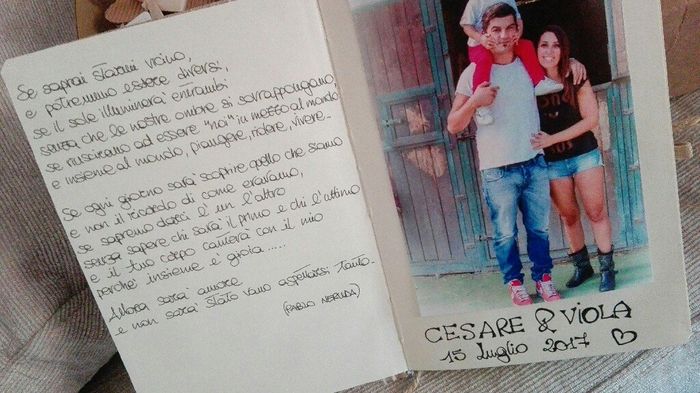 Se saprai starmi vicino,
e potremmo essere diversi,
se il sole illuminerà entrambi
senza che le nostre ombre si sovrappongano,
se riusciremo ad essere "noi" in mezzo al mondo
e insieme al mondo, piangere, ridere, vivere..
Se ogni giorno sarà scoprire quello che siamo
e non il ricordo di come eravamo,
se sapremo darci l'un l'altro
senza sapere chi sarà il primo e chi l'ultimo
e il tuo corpo canterà con il mio
perchè insieme è gioia.....
Allora sarà amore
e non sarà stato vano aspettarsi tanto.
(PABLO NERUDA)
CESARE & VIOLA
15 Luglio 2017